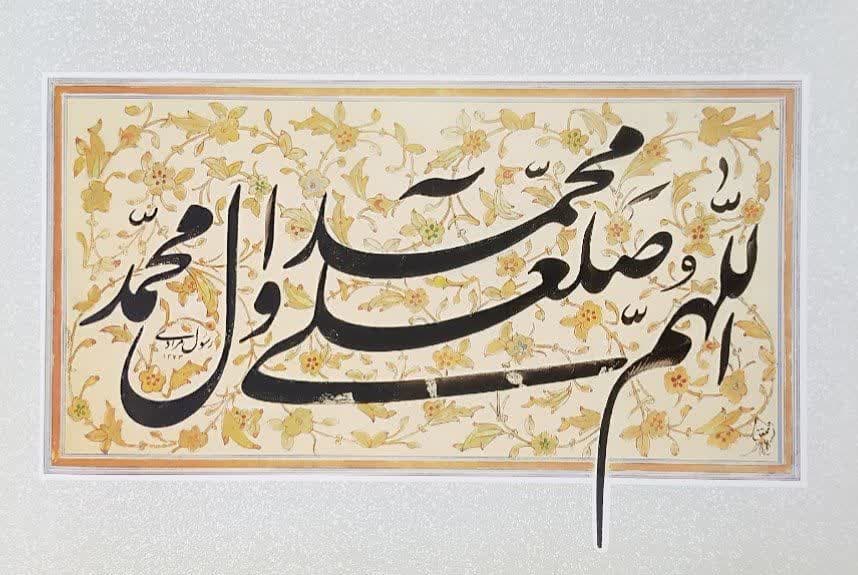 اللّٰهمّ صل علی محمّد و آل محمّد
رسول مرادی
۱۳۷۳